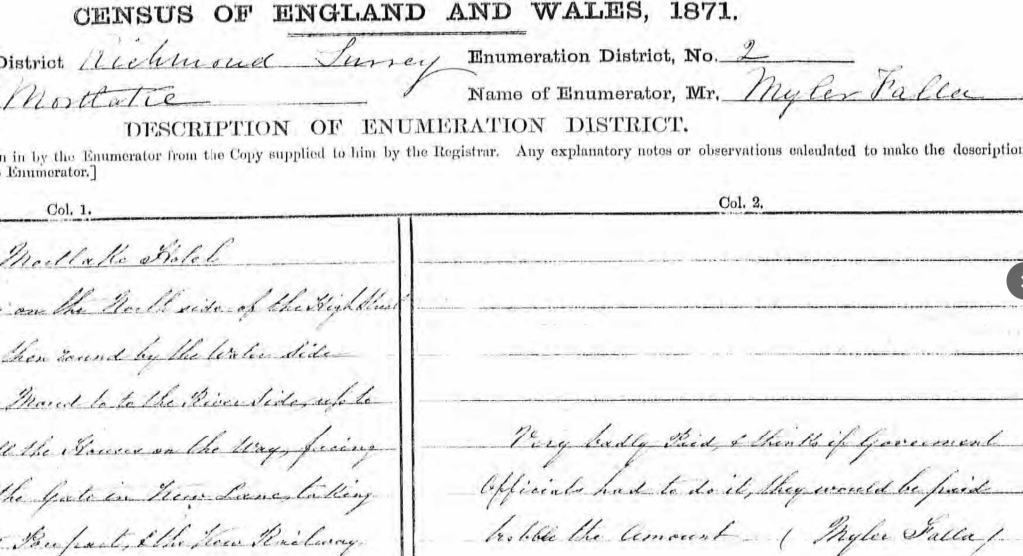 CENSUS OF ENGLAND AND WALES, 1871.
District Richmond Surrey Enumeration District, No. 2
Mortlake Name of Enumerator, Mr. Myler Falla
DESCRIPTION OF ENUMERATION DISTRICT.
n in by the Enumerator from the Copy supplied to him by the Registrar. Any explanatory notes or observations calculated to make the description
Enumerator.]
Col. 1.
Col. 2.
Mortlake Hotel
on the North side of the High Street
then round by the Water Side
to the River Side, up to
the Houses on the Way, facing
the Gate in Kew Lane, taking
part, & the Kew Railway
Very badly Paid, & thinks if Goverment
Officials had to do it, they would be paid
the Amount (Myler Falla)